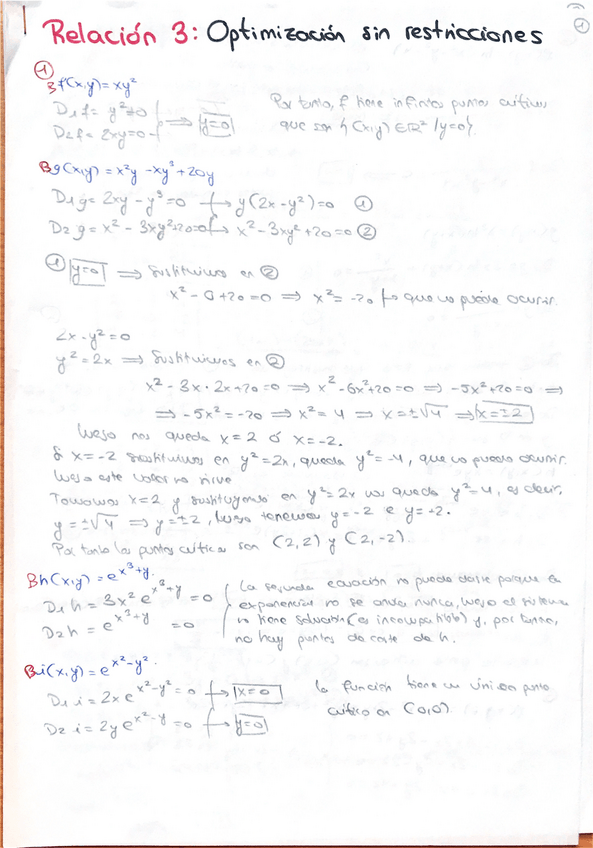 1
Relación 3: Optimización sin restricciones
1
f(x,y)=xy²
D₁f = y²=0
D₂f = 2xy=0 ⟹ y=0
Por tanto, f tiene infinitos puntos críticos
que son {(x,y) ∈ℝ² / y=0}.
g(x,y) = x²y - xy³ + 20y
D₁g = 2xy - y³ = 0 → y(2x-y²)=0 ①
D₂g = x² - 3xy²+20=0 → x² - 3xy² +20 = 0 ②
① y=0 ⟹ Sustituimos en ②
x² - 0 +20 = 0 ⟹ x² = -20 → que no puede ocurrir.
2x - y² = 0
y² = 2x ⟹ Sustituimos en ②
x² - 3x · 2x + 20 = 0 ⟹ x² - 6x² + 20 = 0 ⟹ -5x² + 20 = 0 ⟹
⟹ -5x² = -20 ⟹ x² = 4 ⟹ x = ±√4 ⟹ x = ±2
Luego nos queda x = 2 ó x = -2.
Si x = -2 sustituimos en y² = 2x, queda y² = -4, que no puede ocurrir.
Luego este valor no sirve
Tomamos x=2 y sustituyendo en y²=2x nos queda y²=4, es decir,
y = ±√4 ⟹ y = ±2, luego tenemos y = -2 e y = +2.
Por tanto los puntos críticos son (2,2) y (2,-2).
h(x,y) = e^{x³+y}.
D₁h = 3x² e^{x³+y} = 0
D₂h = e^{x³+y} = 0
La segunda ecuación no puede darse porque la
exponencial no se anula nunca, luego el sistema
no tiene solución (es incompatible) y, por tanto,
no hay puntos de corte de h.
i(x,y) = e^{x²-y²}.
D₁ i = 2x e^{x²-y²} = 0 → x=0
D₂ i = 2y e^{x²-y} = 0 → y=0
la función tiene un único punto
crítico en (0,0).